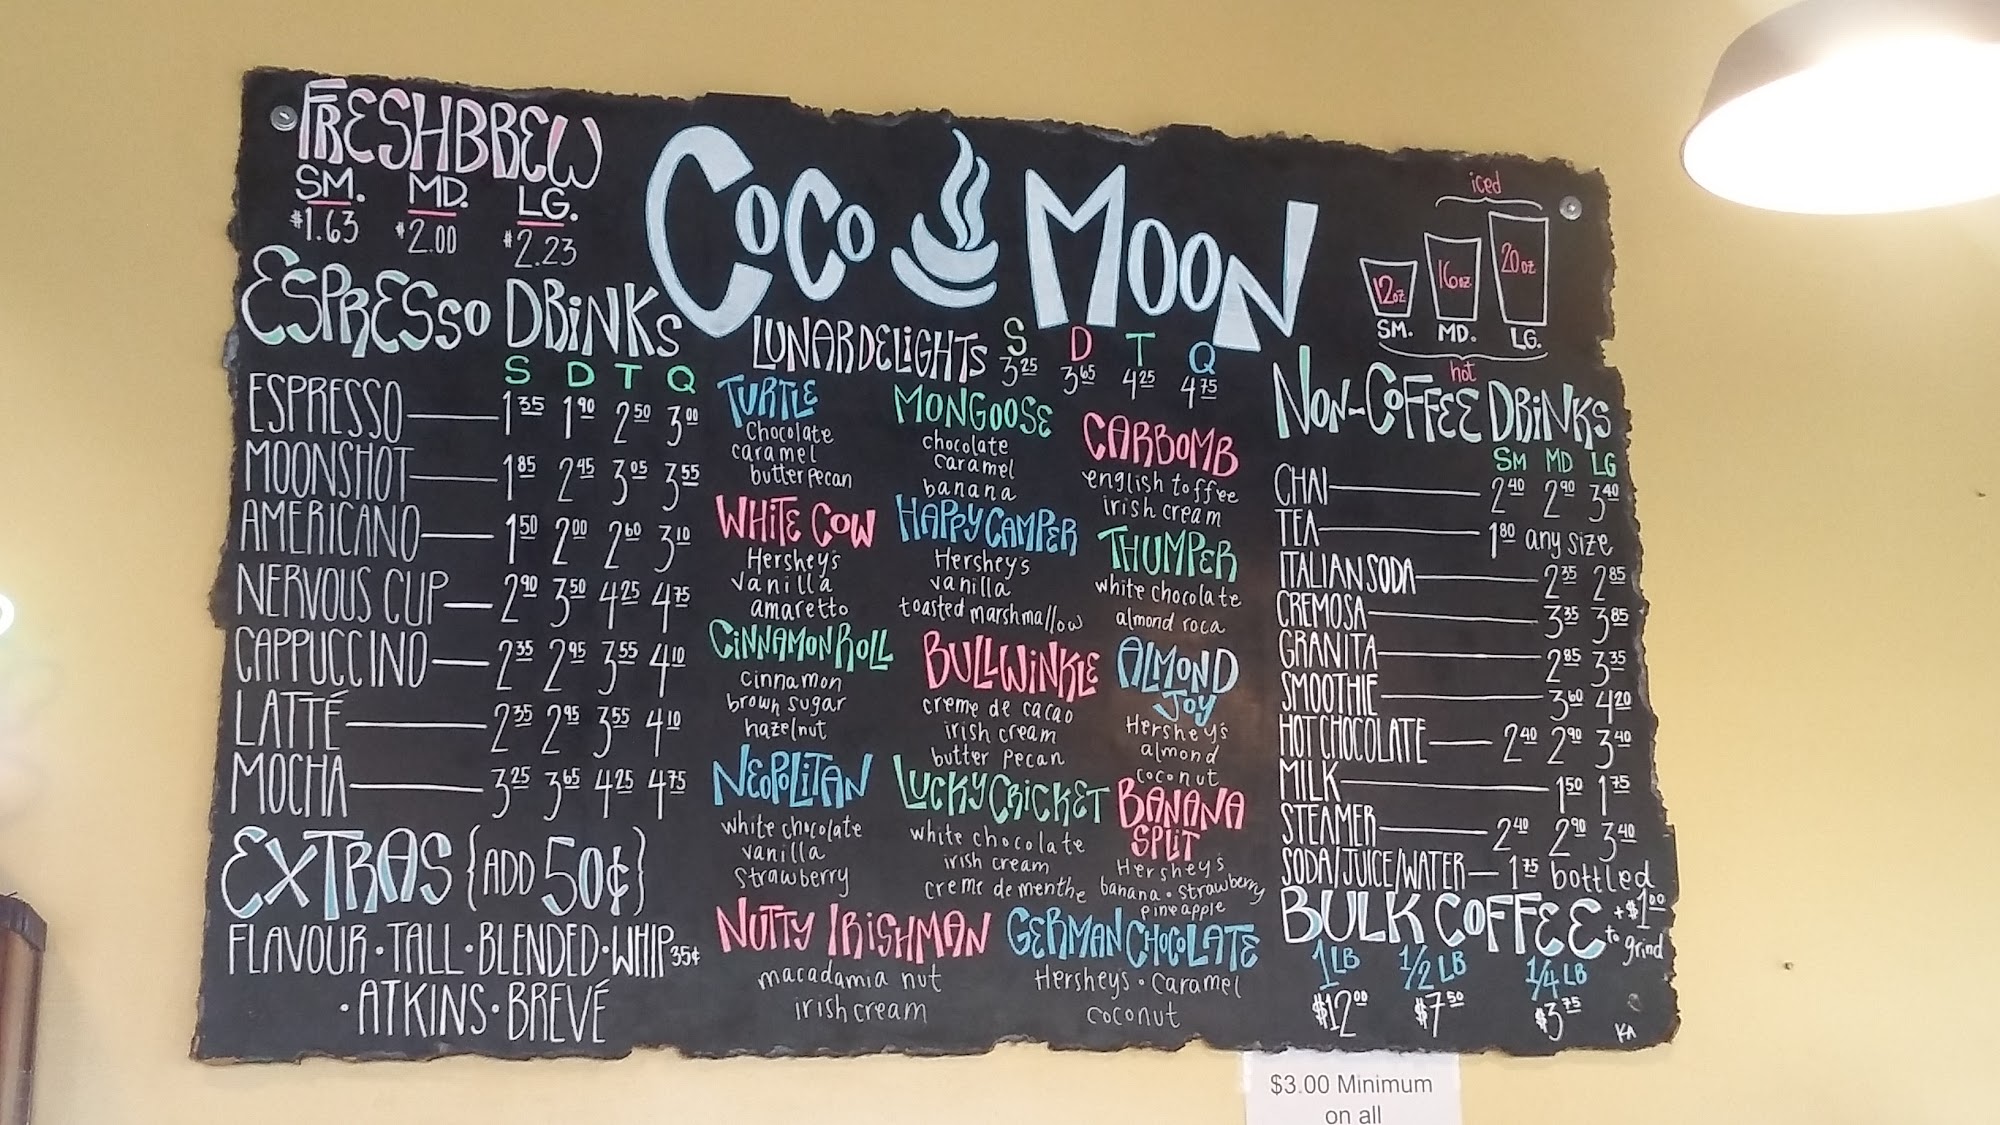 FRESHBREW
SM. MD. LG.
$1.63 $2.00 $2.23
ESPRESSO DRINKS
S D T Q
ESPRESSO 1 35 1 90 2 50 3 00
MOONSHOT 1 85 2 45 3 05 3 55
AMERICANO 1 50 2 00 2 60 3 10
NERVOUS CUP 2 90 3 50 4 25 4 75
CAPPUCCINO 2 35 2 95 3 55 4 10
LATTÉ 2 35 2 95 3 55 4 10
MOCHA 3 25 3 65 4 25 4 75
EXTRAS {ADD 50¢}
FLAVOUR · TALL · BLENDED · WHIP 35¢
· ATKINS · BREVÉ
COCO MOON
LUNAR DELIGHTS S D T Q
3 25 3 65 4 25 4 75
TURTLE
Chocolate
caramel
butter pecan
WHITE COW
Hershey's
vanilla
amaretto
CINNAMON ROLL
cinnamon
brown sugar
hazelnut
NEOPOLITAN
white chocolate
vanilla
Strawberry
NUTTY IRISHMAN
macadamia nut
irish cream
MONGOOSE
chocolate
caramel
banana
HAPPY CAMPER
Hershey's
vanilla
toasted marshmallow
BULLWINKLE
creme de cacao
irish cream
butter pecan
LUCKY CRICKET
white chocolate
irish cream
creme de menthe
GERMAN CHOCOLATE
Hersheys · Caramel
coconut
CARBOMB
english toffee
irish cream
THUMPER
white chocolate
almond roca
ALMOND
JOY
Hershey's
almond
coconut
BANANA
SPLIT
Hershey's
banana · strawberry
pineapple
iced
12oz 16oz 20oz
SM. MD. LG.
hot
NON-COFFEE DRINKS
SM MD LG
CHAI 2 40 2 90 3 40
TEA 1 80 any size
ITALIAN SODA 2 35 2 85
CREMOSA 3 35 3 85
GRANITA 2 85 3 35
SMOOTHIE 3 60 4 20
HOT CHOCOLATE 2 40 2 90 3 40
MILK 1 50 1 75
STEAMER 2 40 2 90 3 40
SODA/JUICE/WATER 1 75 bottled
BULK COFFEE +$1 00 to grind
1 LB 1/2 LB 1/4 LB
$12 00 $7 50 $3 75
KA
$3.00 Minimum
on all